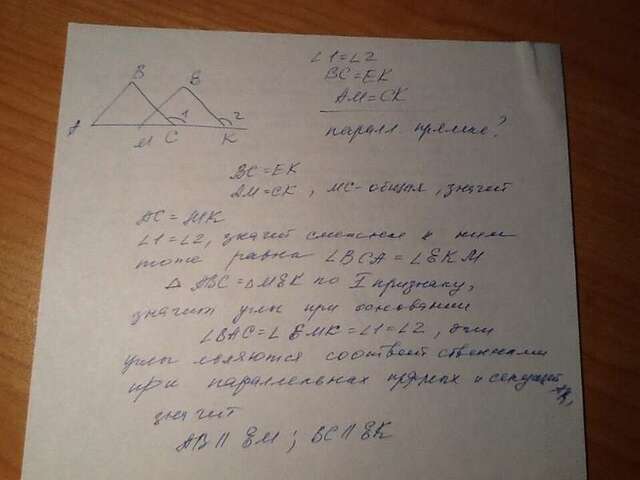 ∠1=∠2
BC=EK
AM=CK
паралл. прямые?
B B
A M C 1 K 2
BC=EK
AM=CK, MC-общая, значит
AC=MK
∠1=∠2, значит смежные к ним
тоже равна ∠BCA=∠EKM
△ ABC=△MEK по I признаку,
значит углы при основании
∠BAC=∠EMK=∠1=∠2, эти
углы являются соответственными
при параллельных прямых и секущей AK,
значит
AB || EM; BC || EK